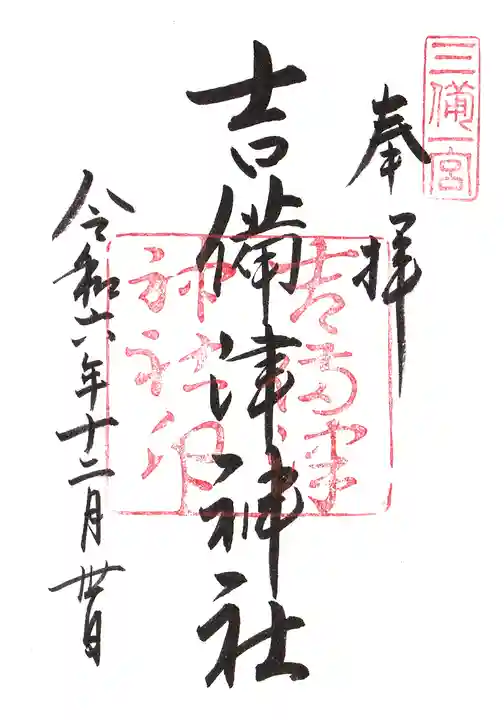 三備一宮
奉拝
吉備津神社
吉備津
神社印
令和六年十二月卅日